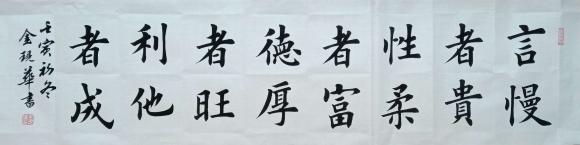 言慢
者貴
性柔
者富
德厚
者旺
利他
者成
壬寅初冬
金華書